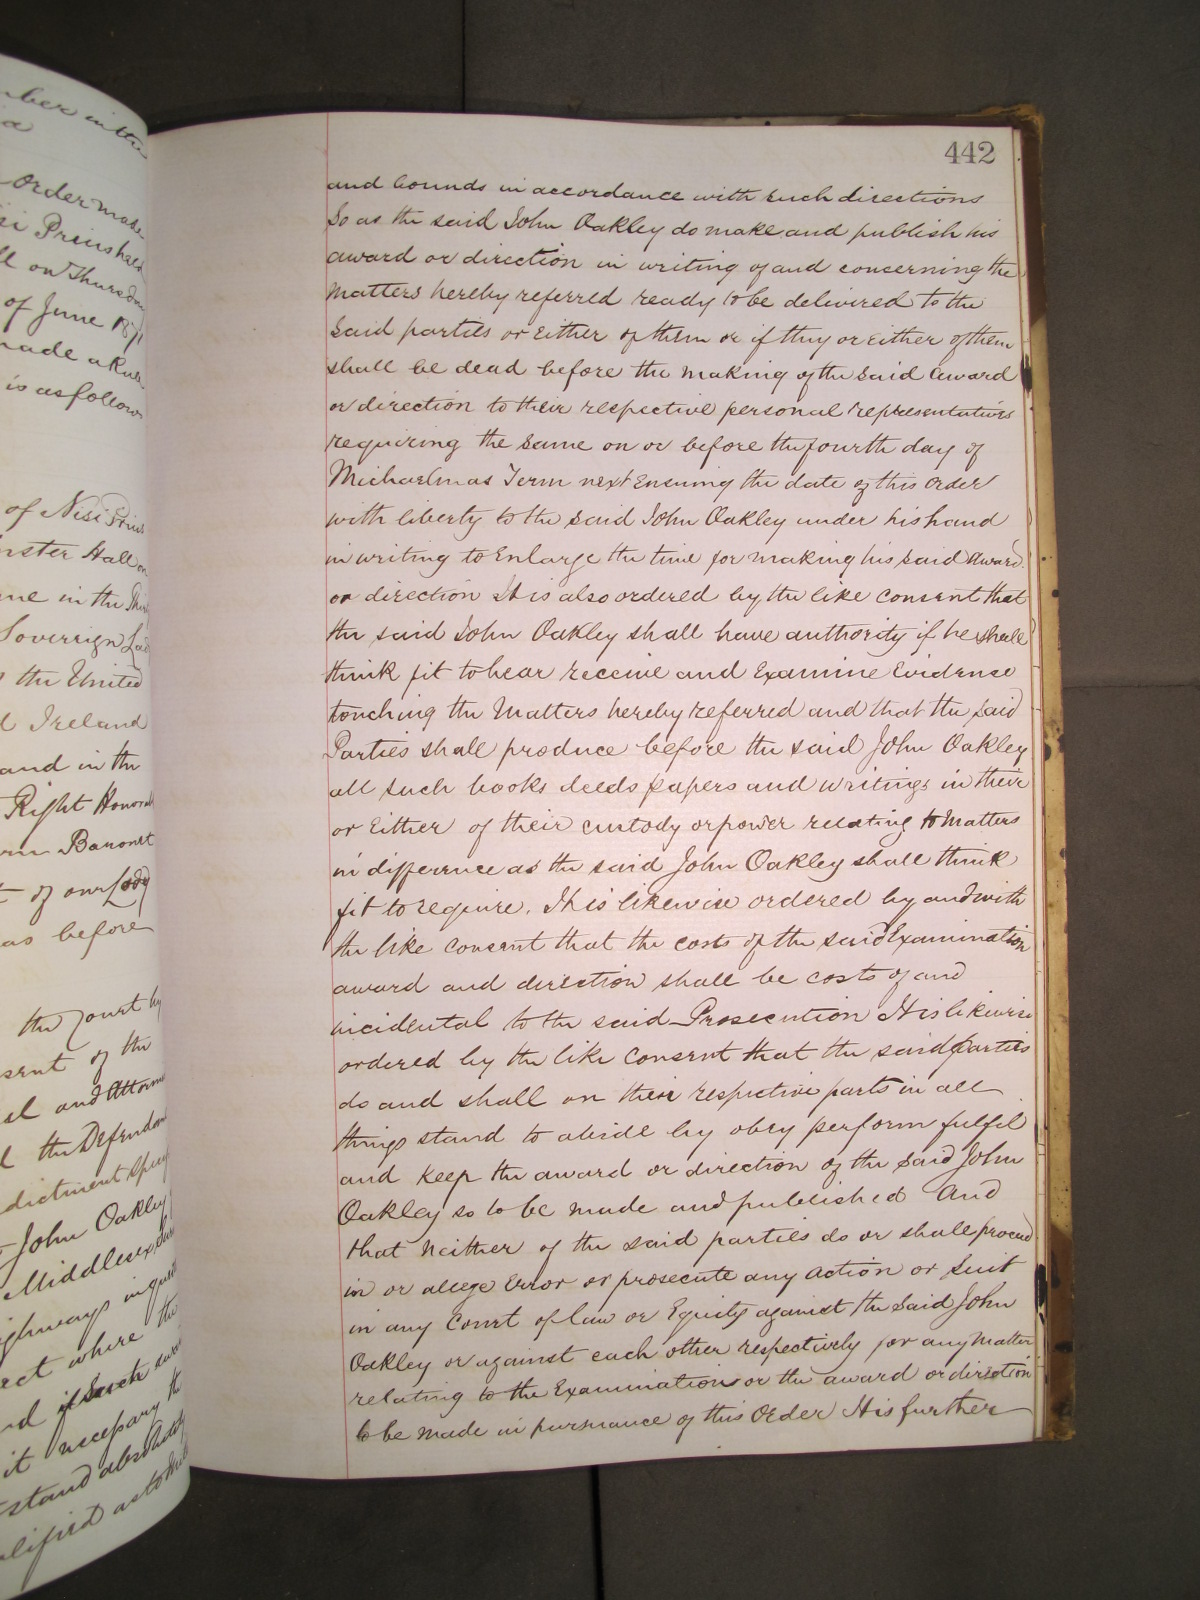 mber in the
a
order made
si Prius held
ll on Thursday
of June 1871
made a Rule
is as follows
of Nisi Prius
nster Hall on
une in the
Sovereign Lady
the United
d Ireland
and in the
Right Honorable
rn Baronet
t of our Lady
as before
the Court by
sent of the
el and Attorney
l the Defendant
dictment
John Oakley
Middlesex
ighways
ect where the
nd if such
it necessary to
stand absolutely
alified as to the
442
and bounds in accordance with such directions
So as the said John Oakley do make and publish his
award or direction in writing of and concerning the
Matters hereby referred ready to be delivered to the
Said parties or Either of them or if they or Either of them
shall be dead before the making of the said award
or direction to their respective personal representatives
requiring the same on or before the fourth day of
Michaelmas Term next Ensuing the date of this order
with liberty to the said John Oakley under his hand
in writing to Enlarge the time for making his said award
or direction It is also ordered by the like consent that
the said John Oakley shall have authority if he shall
think fit to hear receive and Examine Evidence
touching the Matters hereby referred and that the said
Parties shall produce before the said John Oakley
all such books deeds papers and writings in their
or Either of their custody or power relating to Matters
in difference as the said John Oakley shall think
fit to require. It is likewise ordered by and with
the like consent that the costs of the said Examination
award and direction shall be costs of and
incidental to the said Prosecution It is likewise
ordered by the like Consent that the said parties
do and shall on their respective parts in all
things stand to abide by obey perform fulfil
and keep the award or direction of the said John
Oakley so to be made and published And
that Neither of the said parties do or shall proceed
in or allege Error or prosecute any Action or Suit
in any Court of law or Equity against the said John
Oakley or against each other respectively for any Matter
relating to the Examination or the award or direction
to be made in pursuance of this Order It is further